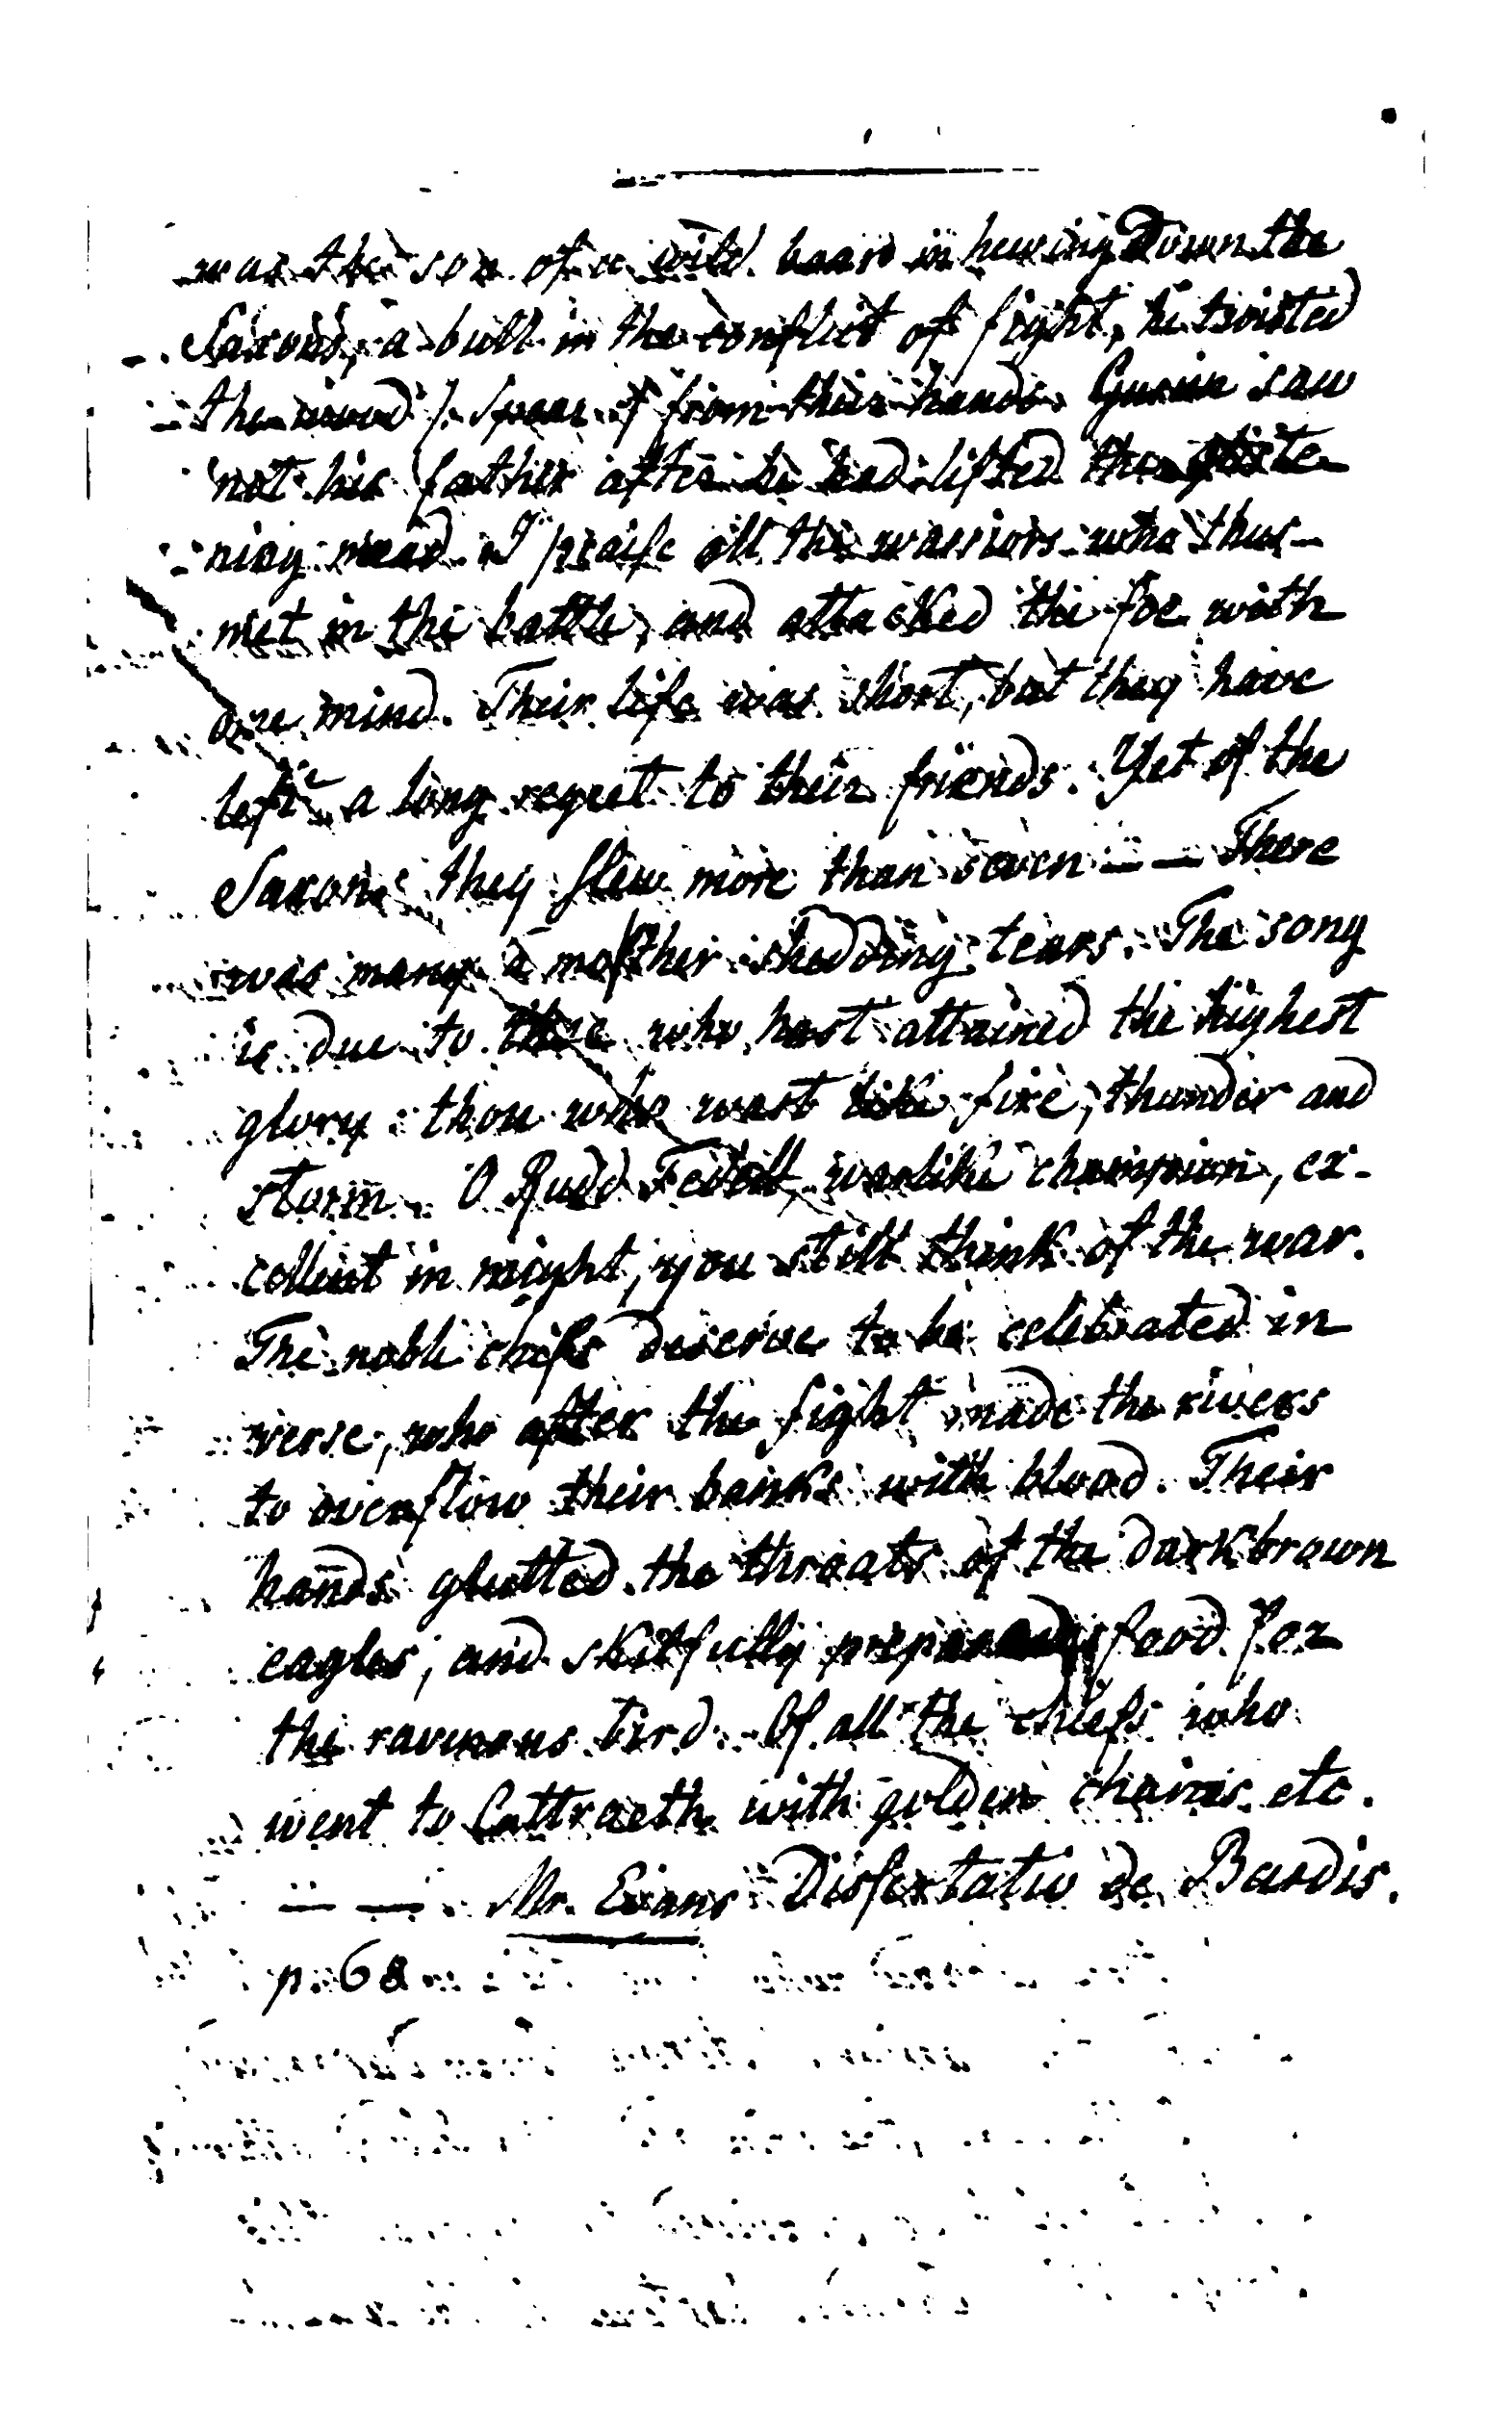 was the son of a wild boar in hewing down the
Saxons, a bull in the conflict of fight, he twisted
the wood (. Spear .) from their hands. Gurien saw
not his father after he had lifted the gliste
ning mead. I praise all the warriors who thus
met in the battle, and attacked the foe with
one mind. Their life was short, but they have
left a long regret to their friends. Yet of the
Saxons they slew more than seven — — There
was many a mother shedding tears. The song
is due to thee who hast attained the highest
glory: thou who wast like fire, thunder and
storm. O Rudd Fedell warlike champion, ex-
cellent in might, you still think of the war.
The noble chiefs deserve to be celebrated in
verse, who after the fight made the rivers
to overflow their banks with blood. Their
hands glutted the throats of the darkbrown
eagles, and skilfully food for
the ravenous bird. Of all the chiefs who
went to Cattraeth with golden chains etc.
— — . Mr. Evans Dissertatio de Bardis.
p. 68